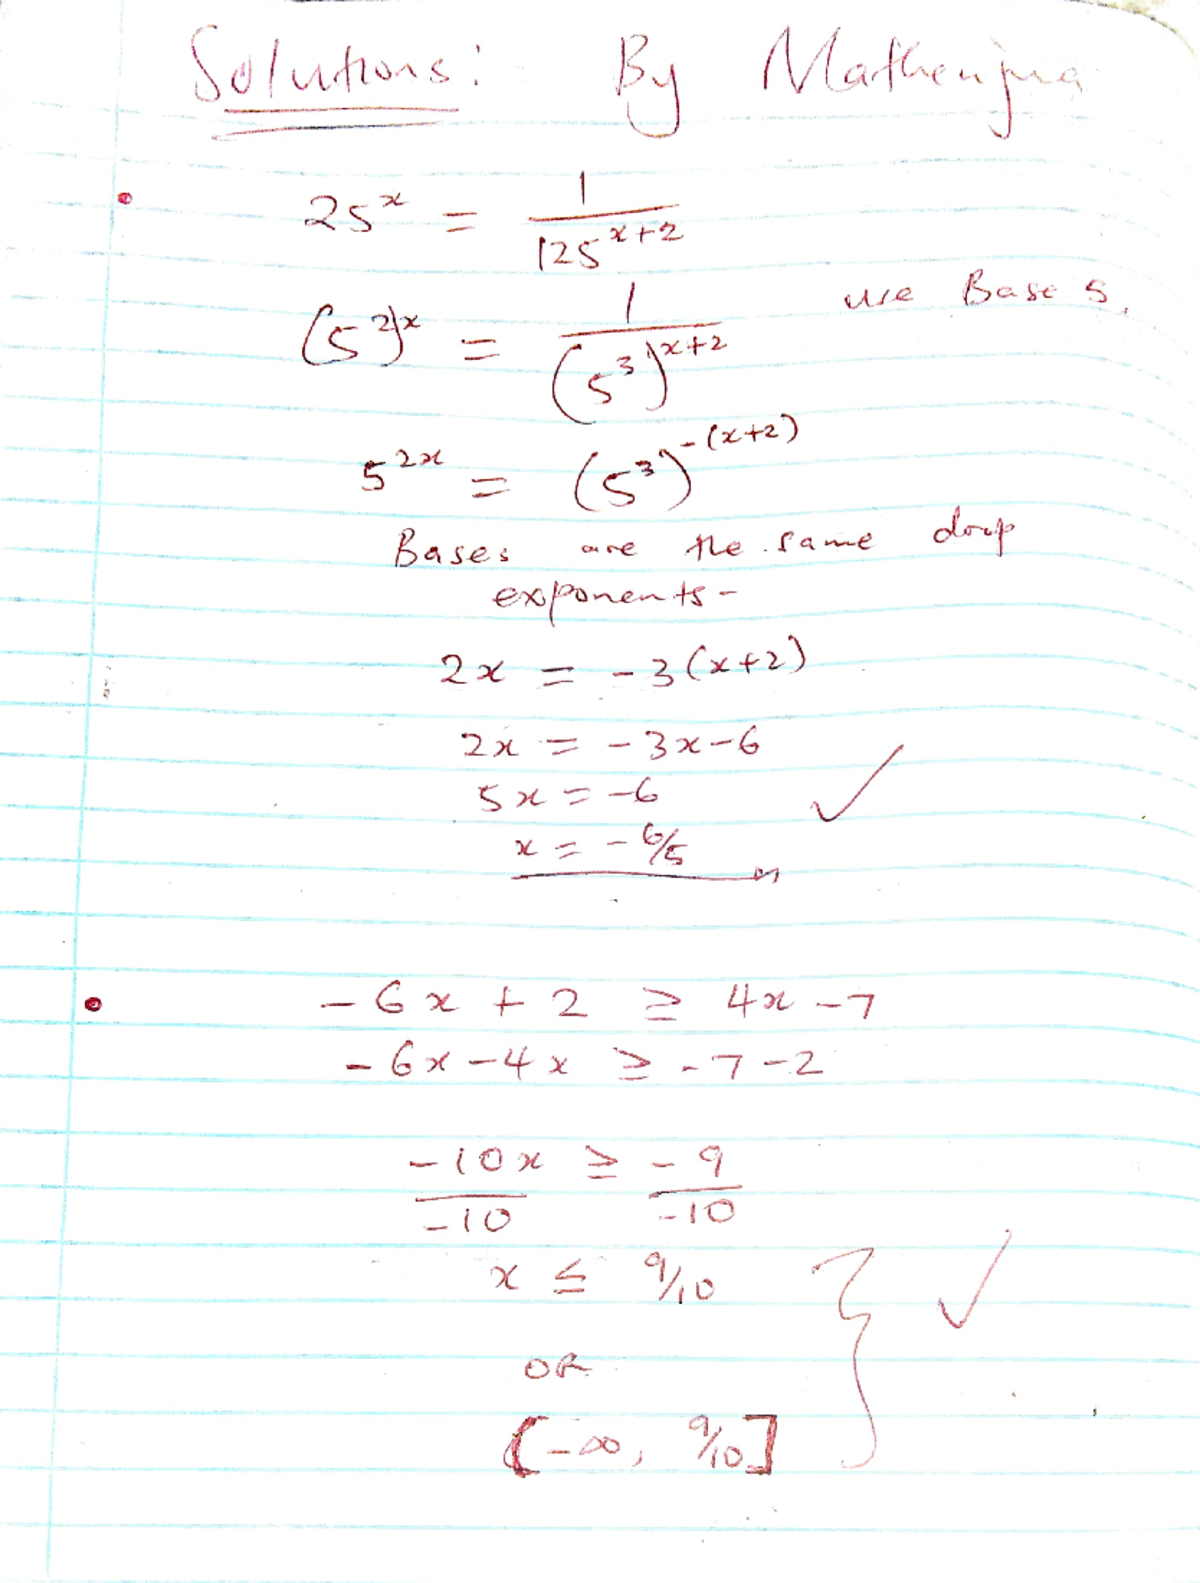 Solutions: By Mathenjwa
25^x = 1/125^(x+2)
(5^2)^x = 1/(5^3)^(x+2) use Base 5.
5^2x = (5^3)^-(x+2)
Bases are the same drop
exponents-
2x = -3(x+2)
2x = -3x-6
5x = -6
x = -6/5
-6x + 2 ≥ 4x -7
-6x -4x ≥ -7 -2
-10x/-10 ≥ -9/-10
x ≤ 9/10
OR
(-∞, 9/10]